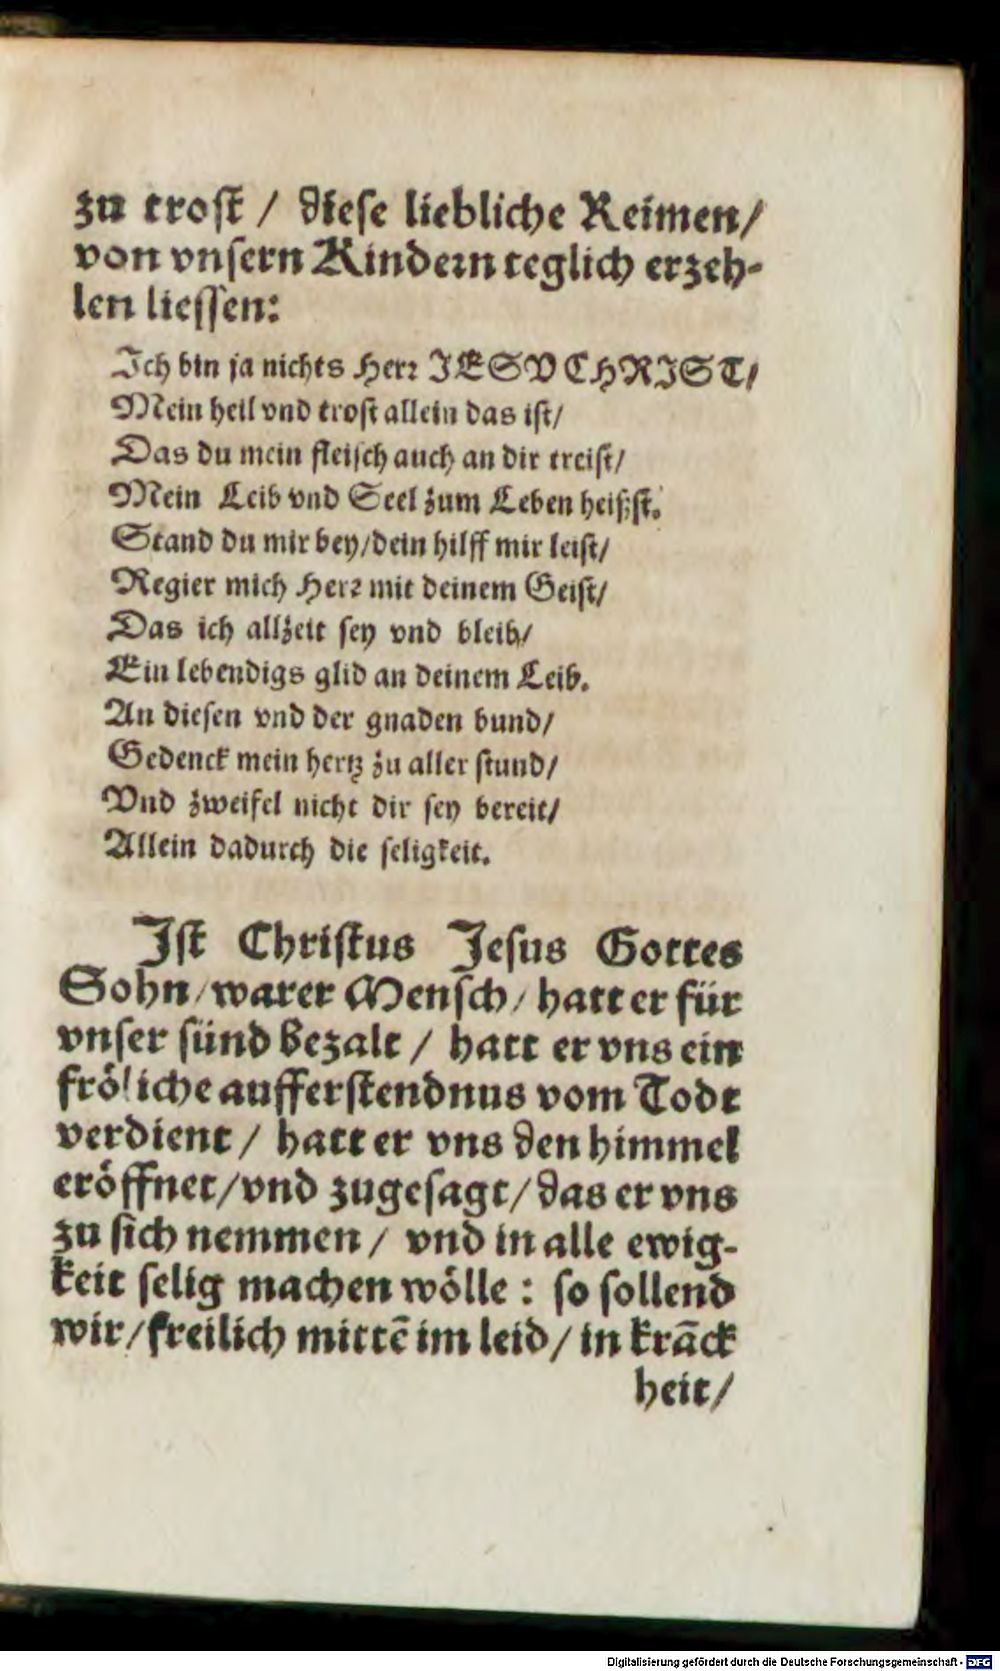 zu trost / diese liebliche Reimen/
von vnsern Kindern teglich erzeh-
len liessen:
Ich bin ja nichts Herr JESV CHRIST/
Mein heil vnd trost allein das ist/
Das du mein fleisch auch an dir treist/
Mein Leib vnd Seel zum Leben heißst.
Stand du mir bey/dein hilff mir leist/
Regier mich Herr mit deinem Geist/
Das ich allzeit sey vnd bleib/
Ein lebendigs glid an deinem Leib.
An diesen vnd der gnaden bund/
Gedenck mein hertz zu aller stund/
Vnd zweifel nicht dir sey bereit/
Allein dadurch die seligkeit.
Ist Christus Jesus Gottes
Sohn/warer Mensch/ hatt er für
vnser sünd bezalt / hatt er vns ein
fröliche aufferstendnus vom Todt
verdient / hatt er vns den himmel
eröffnet/vnd zugesagt/das er vns
zu sich nemmen / vnd in alle ewig-
keit selig machen wölle : so sollend
wir/freilich mittē im leid/ in krāck
heit/
Digitalisierung gefördert durch die Deutsche Forschungsgemeinschaft - DFG